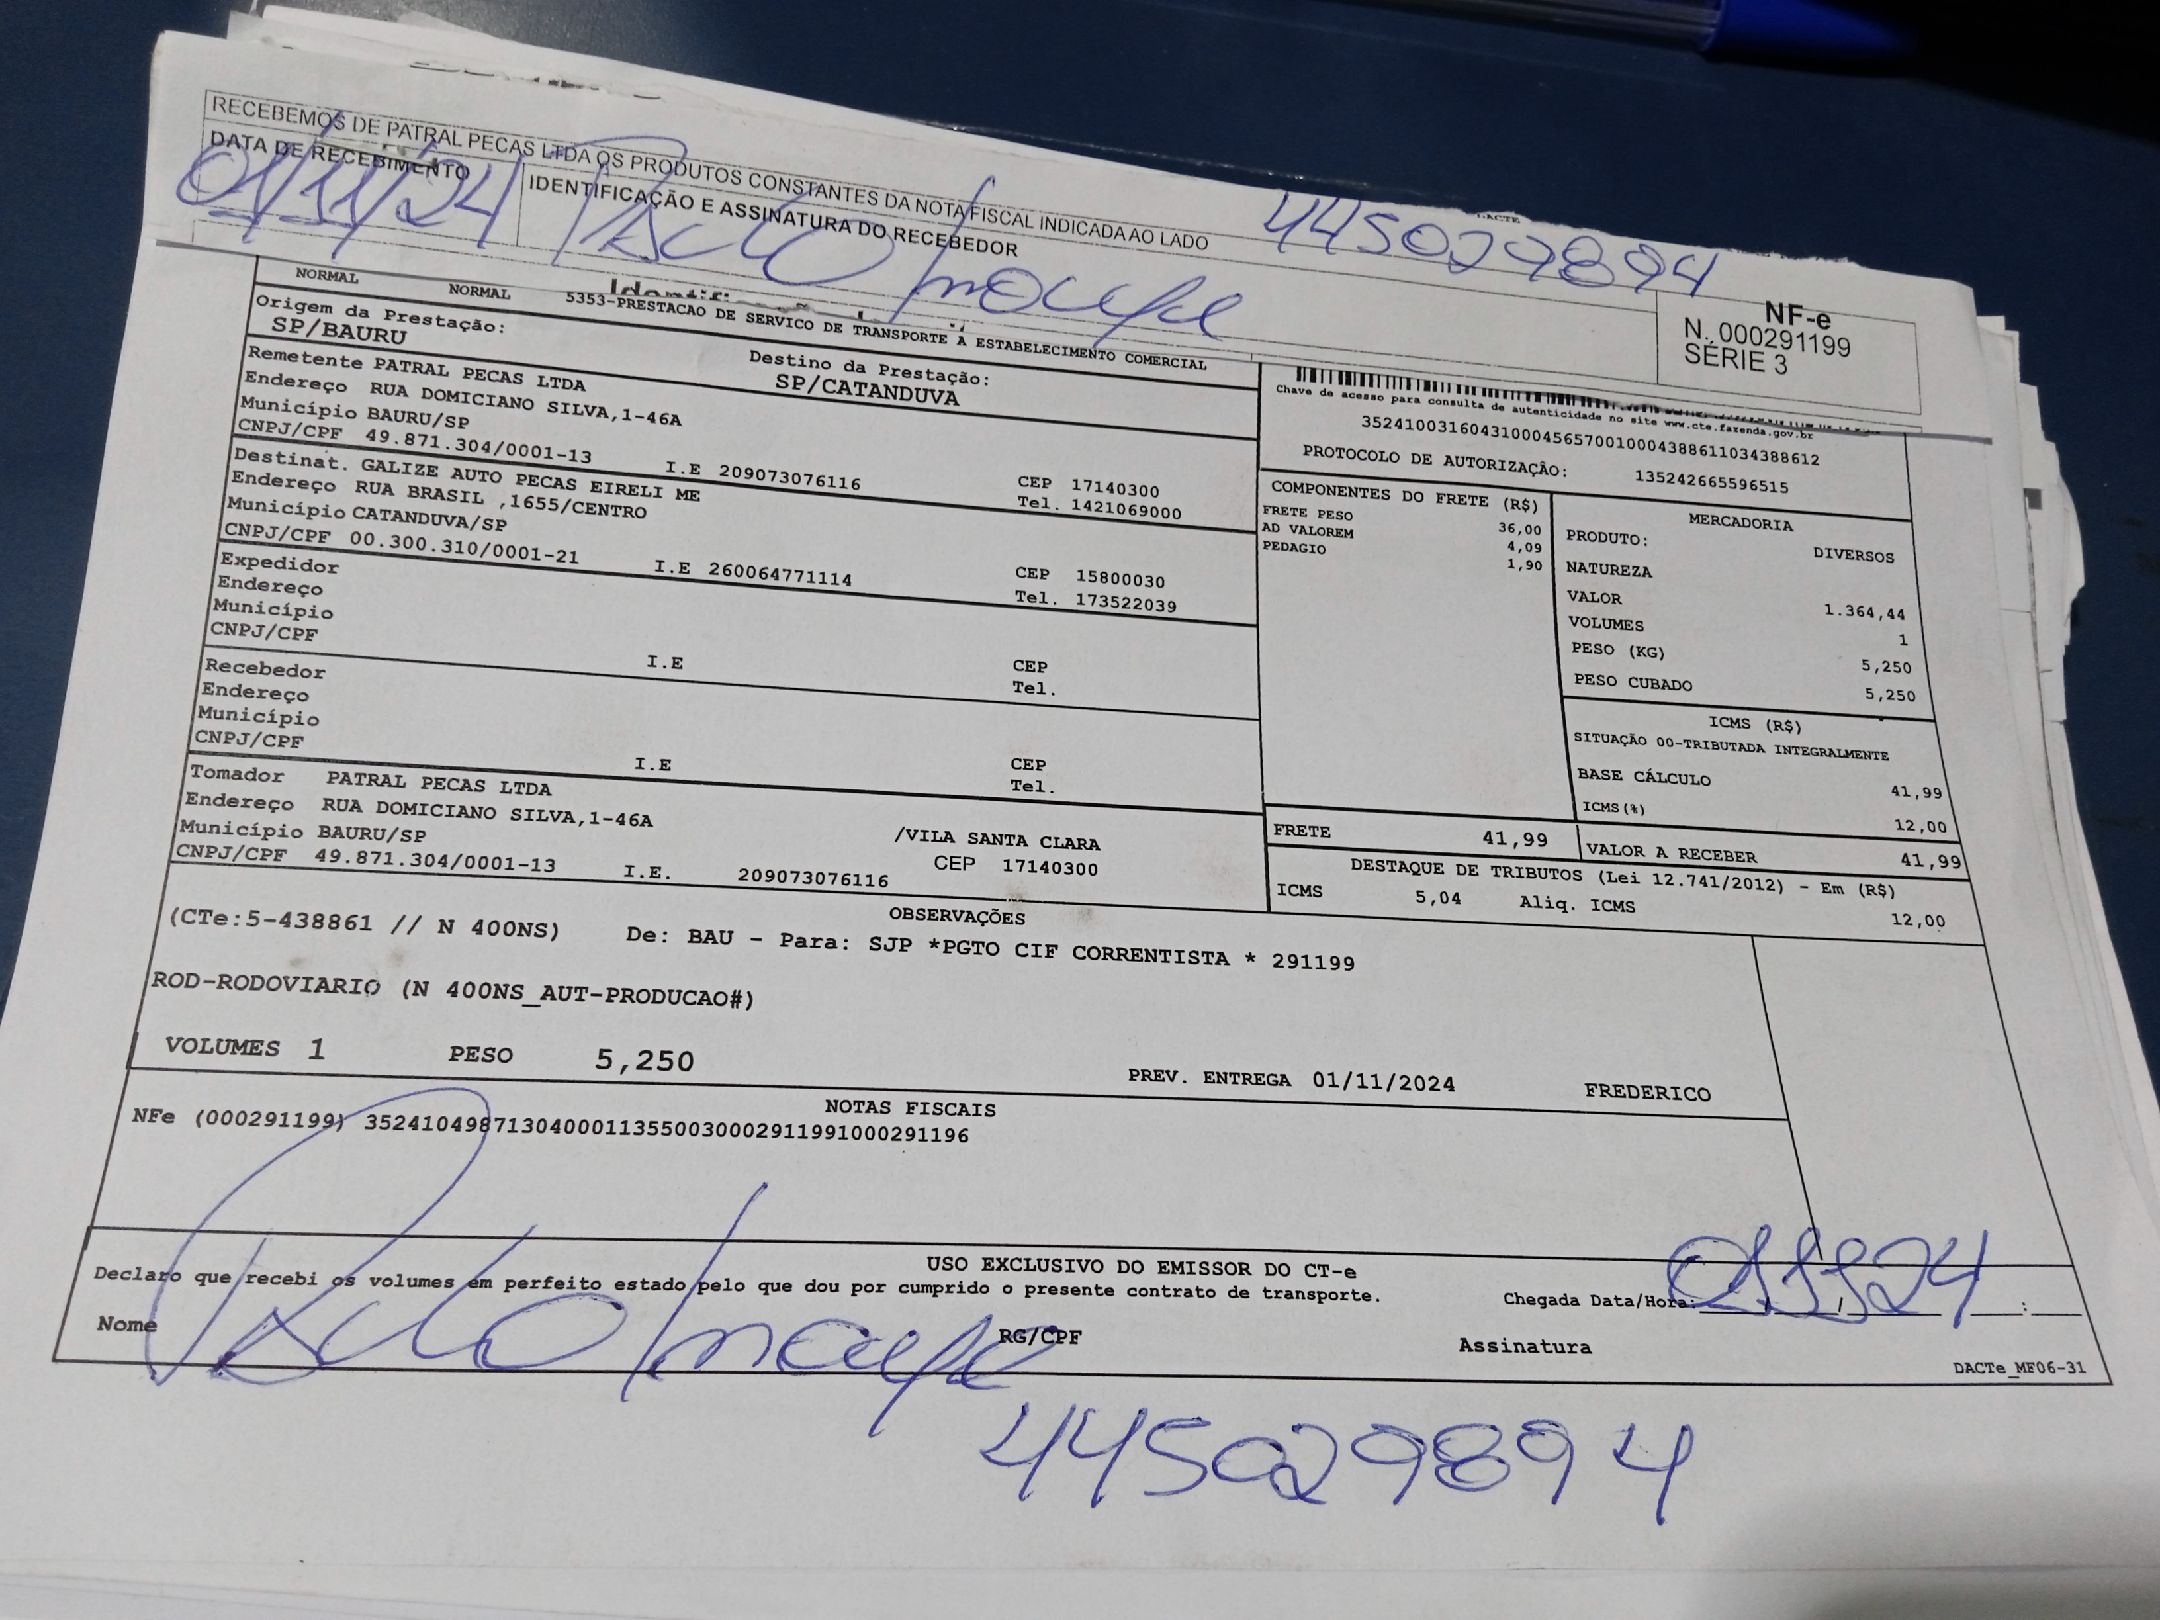 RECEBEMOS DE PATRAL PECAS LTDA OS PRODUTOS CONSTANTES DA NOTA FISCAL INDICADA AO LADO
DATA DE RECEBIMENTO
IDENTIFICAÇÃO E ASSINATURA DO RECEBEDOR
01/11/24
445029894
NF-e
N. 000291199
SÉRIE 3
NORMAL NORMAL 5353-PRESTACAO DE SERVICO DE TRANSPORTE A ESTABELECIMENTO COMERCIAL
Origem da Prestação:
SP/BAURU
Destino da Prestação:
SP/CATANDUVA
Remetente PATRAL PECAS LTDA
Endereço RUA DOMICIANO SILVA,1-46A
Município BAURU/SP
CNPJ/CPF 49.871.304/0001-13 I.E 209073076116
CEP 17140300
Tel. 1421069000
Destinat. GALIZE AUTO PECAS EIRELI ME
Endereço RUA BRASIL ,1655/CENTRO
Município CATANDUVA/SP
CNPJ/CPF 00.300.310/0001-21 I.E 260064771114
CEP 15800030
Tel. 173522039
Expedidor
Endereço
Município
CNPJ/CPF I.E
CEP
Tel.
Recebedor
Endereço
Município
CNPJ/CPF I.E
CEP
Tel.
Tomador PATRAL PECAS LTDA
Endereço RUA DOMICIANO SILVA,1-46A
/VILA SANTA CLARA
Município BAURU/SP
CEP 17140300
CNPJ/CPF 49.871.304/0001-13 I.E. 209073076116
Chave de acesso para consulta de autenticidade no site www.cte.fazenda.gov.br
35241003160431000456570010004388611034388612
PROTOCOLO DE AUTORIZAÇÃO: 135242665596515
COMPONENTES DO FRETE (R$)
FRETE PESO 36,00
AD VALOREM 4,09
PEDAGIO 1,90
MERCADORIA
PRODUTO: DIVERSOS
NATUREZA
VALOR 1.364,44
VOLUMES 1
PESO (KG) 5,250
PESO CUBADO 5,250
ICMS (R$)
SITUAÇÃO 00-TRIBUTADA INTEGRALMENTE
BASE CÁLCULO 41,99
ICMS(%) 12,00
FRETE 41,99
VALOR A RECEBER 41,99
DESTAQUE DE TRIBUTOS (Lei 12.741/2012) - Em (R$)
ICMS 5,04 Aliq. ICMS 12,00
OBSERVAÇÕES
(CTe:5-438861 // N 400NS) De: BAU - Para: SJP *PGTO CIF CORRENTISTA * 291199
ROD-RODOVIARIO (N 400NS_AUT-PRODUCAO#)
VOLUMES 1 PESO 5,250
PREV. ENTREGA 01/11/2024 FREDERICO
NOTAS FISCAIS
NFe (000291199) 35241049871304000113550030002911991000291196
USO EXCLUSIVO DO EMISSOR DO CT-e
Declaro que recebi os volumes em perfeito estado pelo que dou por cumprido o presente contrato de transporte.
Chegada Data/Hora: / / :
Nome RG/CPF Assinatura
DACTe_MF06-31
445029894